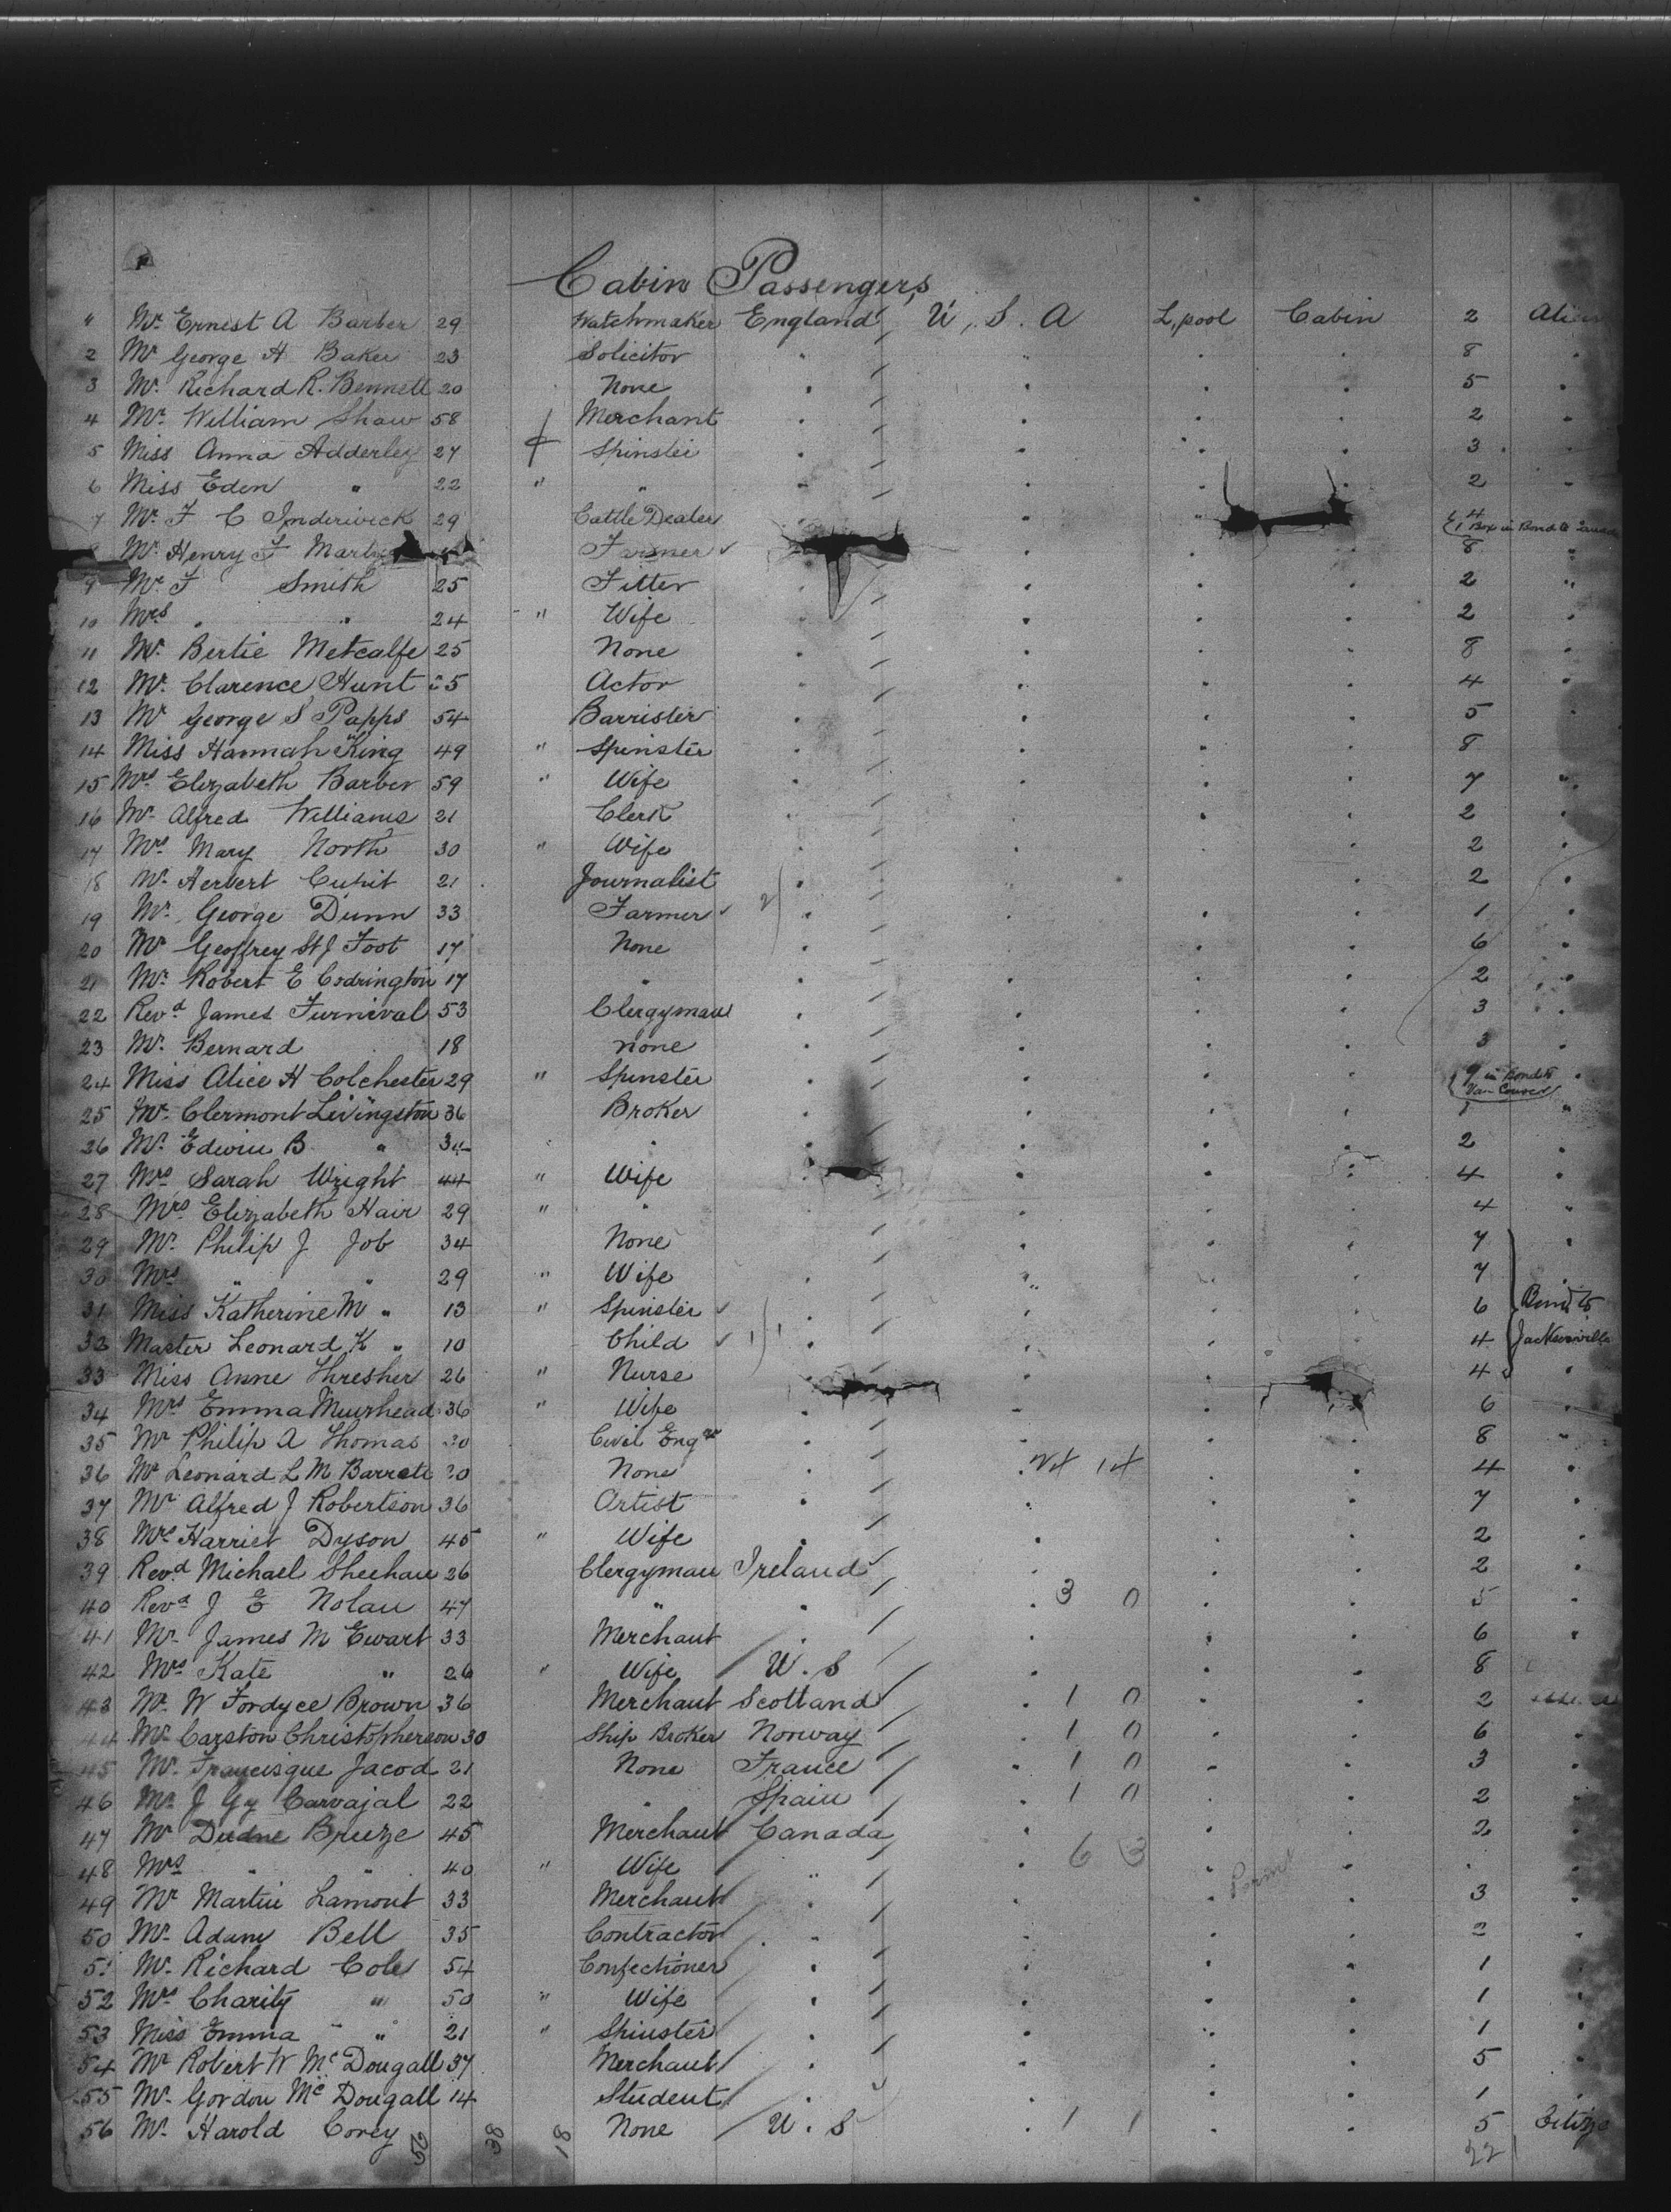 Cabin Passengers
" Mr. Ernest A Barber 29 Watchmaker England U. S. A L,pool Cabin 2
2 Mr George H Baker 23 Solicitor " " . . 8 .
3 Mr. Richard R. Bennett 20 None . . . . 5 .
4 Mr. William Shaw 58 Merchant . . . . 2 .
5 Miss Anna Adderley 27 Spinster . . . . 3 .
6 Miss Eden " 22 " " . . . . 2 .
7 Mr. F C Inderwick 29 Cattle Dealer . . . 4
1 Box in Bond to
Mr. Henry F Farmer . . . 8 "
9 Mr. F Smith 25 Fitter . . . 2 "
10 Mrs . . 24 " Wife . . . 2 .
11 Mr. Bertie Metcalfe 25 None . . . . 8 .
12 Mr. Clarence Hunt Actor . . . . 4 .
13 Mr George S Papps 54 Barrister . . . . 5
14 Miss Hannah King 49 " Spinster . . . . 8
15 Mrs Elizabeth Barber 59 " Wife . . . . 7 "
16 Mr. Alfred Williams 21 Clerk . . . . 2 .
17 Mrs Mary North 30 " Wife . . . 2 .
18 Mr. Herbert 21 Journalist . . 2 .
19 Mr. George Dunn 33 Farmer . . . . 1 .
20 Mr Geoffrey St J Foot 17 None . . . . 6 .
21 Mr. Robert E Codrington 17 " . . . . 2 .
22 Revd James Furnival 53 Clergyman . . . . 3 .
23 Mr. Bernard 18 none . . . . 3 .
24 Miss Alice H Colchester 29 " Spinster . . . . 9 in Bond to .
Van Couver
25 Mr. Clermont Livingston 36 Broker . . . . "
26 Mr. Edwin B " . . . . . 2 .
27 Mrs Sarah Wright 44 " Wife . . . . 4 .
28 Mrs Elizabeth Hair 29 " . . . . . 4 "
29 Mr. Philip J Job 34 None . . . 7 .
30 Mrs " " 29 " Wife . . . . 7
31 Miss Katherine M " 13 " Spinster . . . . 6 Bond to
32 Master Leonard K " 10 Child 1 1 . . . . 4 Jacksonville
33 Miss Anne Thresher 26 " Nurse . . 4 .
34 Mrs Emma Muirhead 36 " Wife . . . . 6 .
35 Mr Philip A Thomas Civil Engr . . . . 8 "
36 Mr Leonard L M None . . . . 4 .
37 Mr Alfred J Robertson 36 Artist . . . . 7 .
38 Mrs Harriet Dyson 45 " Wife . . . . 2 .
39 Revd Michael Sheehan 26 Clergyman Ireland . . . 2 .
40 Revd J E Nolan 47 " . . 3 0 . . 5 .
41 Mr. James M Ewart 33 Merchant . . . . 6 .
42 Mrs Kate " 26 " Wife U. S . . . 8
43 Mr. W Fordyce Brown 36 Merchant Scotland . 1 0 . . 2
44 Mr Carston Christopherson 30 Ship Broker Norway . 1 0 . . 6 .
45 Mr. Francisque Jacod 21 None France . 1 0 . . 3 .
46 Mr J Gy Carvajal 22 " Spain . 1 0 . . 2 .
47 Mr Breeze 45 Merchant Canada . . . 2 .
48 Mrs " " 40 " Wife " . 6 3 . . . .
49 Mr Martin Lamont 33 Merchant . . . . 3 .
50 Mr. Adam Bell 35 Contractor " . . . 2 .
51 Mr. Richard Coles 54 Confectioner . . . . 1 .
52 Mrs Charity " 50 " Wife . . . . 1 .
53 Miss Emma " 21 " Spinster . . . . 1 .
54 Mr Robert W Mc Dougall 37 Merchant . . . . 5 .
55 Mr. Gordon Mc Dougall 14 Student . . . . 1 .
56 Mr. Harold Corey None U. S . 1 1 . . 5
38 18